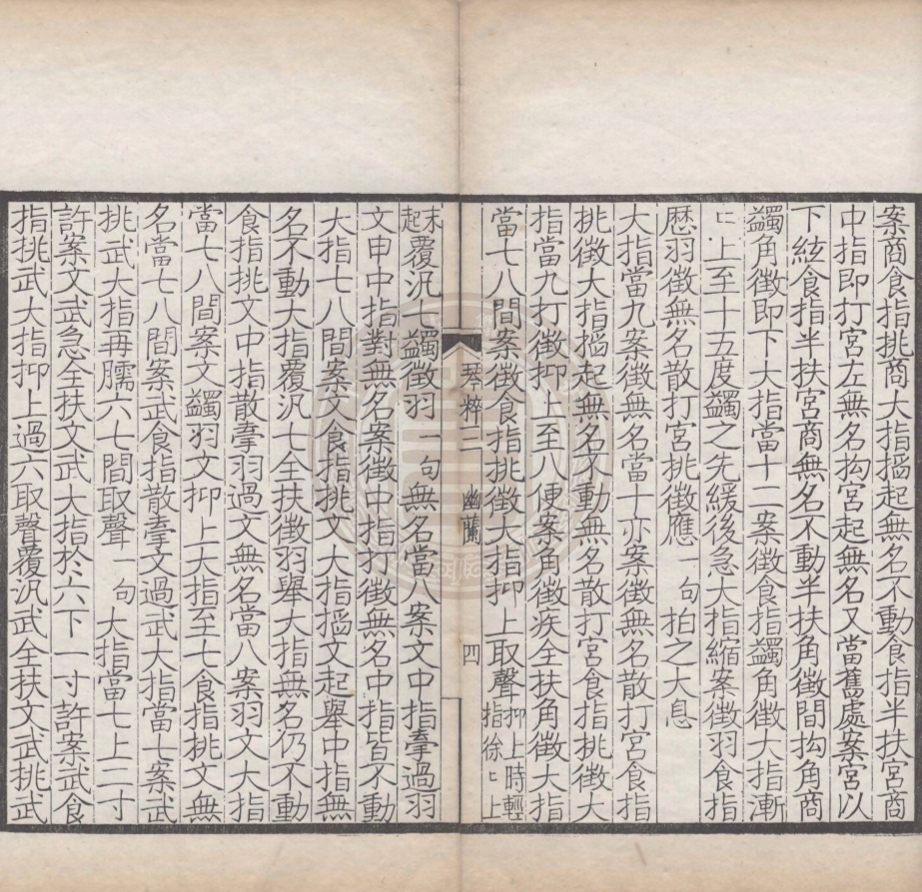 案商食指挑商大指搯起無名不動食指半扶宮商
中指即打宮左無名抅宮起無名又當舊處案宮以
下絃食指半扶宮商無名不動半扶角徵間抅角商
蠲角徵即下大指當十二案徵食指蠲角徵大指漸
〻上至十五度蠲之先緩後急大指縮案徵羽食指
歷羽徵無名散打宮挑徵應一句拍之大息
大指當九案徵無名當十亦案徵無名散打宮食指
挑徵大指搯起無名不動無名散打宮食指挑徵大
指當九打徵抑上至八便案角徵疾全扶角徵大指
當七八間案徵食指挑徵大指抑上取聲抑上時輕指徐〻上
琴粹二 幽蘭 四
末起覆汎七蠲徵羽一句無名當八案文中指搴過羽
文申中指對無名案徵中指打徵無名中指皆不動
大指七八間案文食指挑文大指搯文起舉中指無
名不動大指覆汎七全扶徵羽舉大指無名仍不動
食指挑文中指散搴羽過文無名當八案羽文大指
當七八間案文蠲羽文抑上大指至七食指挑文無
名當七八間案武食指散搴文過武大指當七案武
挑武大指再臑六七間取聲一句大指當七上二寸
許案文武急全扶文武大指於六下一寸許案武食
指挑武大指抑上過六取聲覆汎武全扶文武挑武